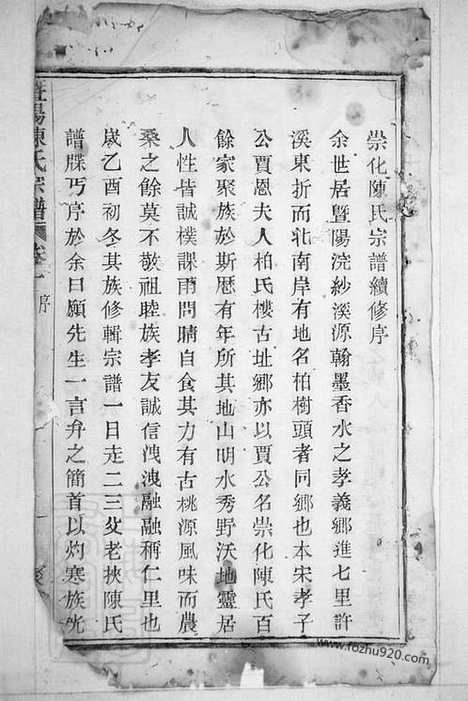 崇化陳氏宗譜續修序
余世居暨陽浣紗溪源翰墨香水之孝義鄉進七里許
溪東折而北南岸有地名柏樹頭者同鄉也本宋孝子
公賈恩夫人柏氏樓古址鄉亦以賈公名崇化陳氏百
餘家聚族於斯曆有年所其地山明水秀野沃地靈居
人性皆誠樸課雨問晴自食其力有古桃源風味而農
桑之餘莫不敬祖睦族孝友誠信洩洩融融稱仁里也
歲乙酉初冬其族修輯宗譜一日走二三父老挾陳氏
譜牒丐序於余曰願先生一言弁之簡首以灼寒族光
暨陽陳氏宗譜 卷一 序
www.fozhu920.com